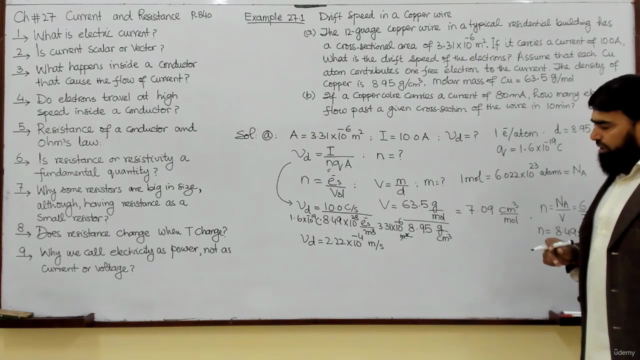 Ch#27 Current and Resistance P.840
1, What is electric current?
2, Is current Scalar or Vector?
3, What happens inside a Conductor
that cause the flow of current?
4, Do eletrons travel at high
speed inside a conductor?
5, Resistance of a conductor and
Ohm's law.
6, Is resistance or resistivity a
fundamental quantity?
7, Why some resistors are big in size,
although, having resistance as a
Small resistor?
8, Does resistance change when T change?
9, Why we call electricity as power, not as
current or voltage?
Example 27.1 Drift Speed in a Copper wire
(a) The 12-guage Copper wire in a typical residential building has
a cross-sectional area of 3.31×10⁻⁶ m². If it carries a current of 10.0A,
What is the drift speed of the electrons? Assume that each Cu
atom contributes one free electron to the current. The density of
Copper is 8.95 g/cm³. molar mass of Cu = 63.5 g/mol
(b) If a Copper wire Carries a current of 80mA, How many e
flow past a given cross-section of the wire in 10min?
Sol: (a) A = 3.31×10⁻⁶ m², I = 10.0A, Vd = ? 1 ē/atom, d = 8.95
q = 1.6×10⁻¹⁹ C
Vd = I/nqA, n = ? 1mol = 6.022×10²³ atoms = NA
n = ēs/Vol V = m/d, m = ?
V = 63.5 g/mol / 8.95 g/cm³ = 7.09 cm³/mol, n = NA/V = 6
n = 8.49
Vd = 10.0 C/s / 1.6×10⁻¹⁹ C 8.49×10²⁸ ēs/m³ 3.31×10⁻⁶ m²
Vd = 2.22×10⁻⁴ m/s
ûdemy